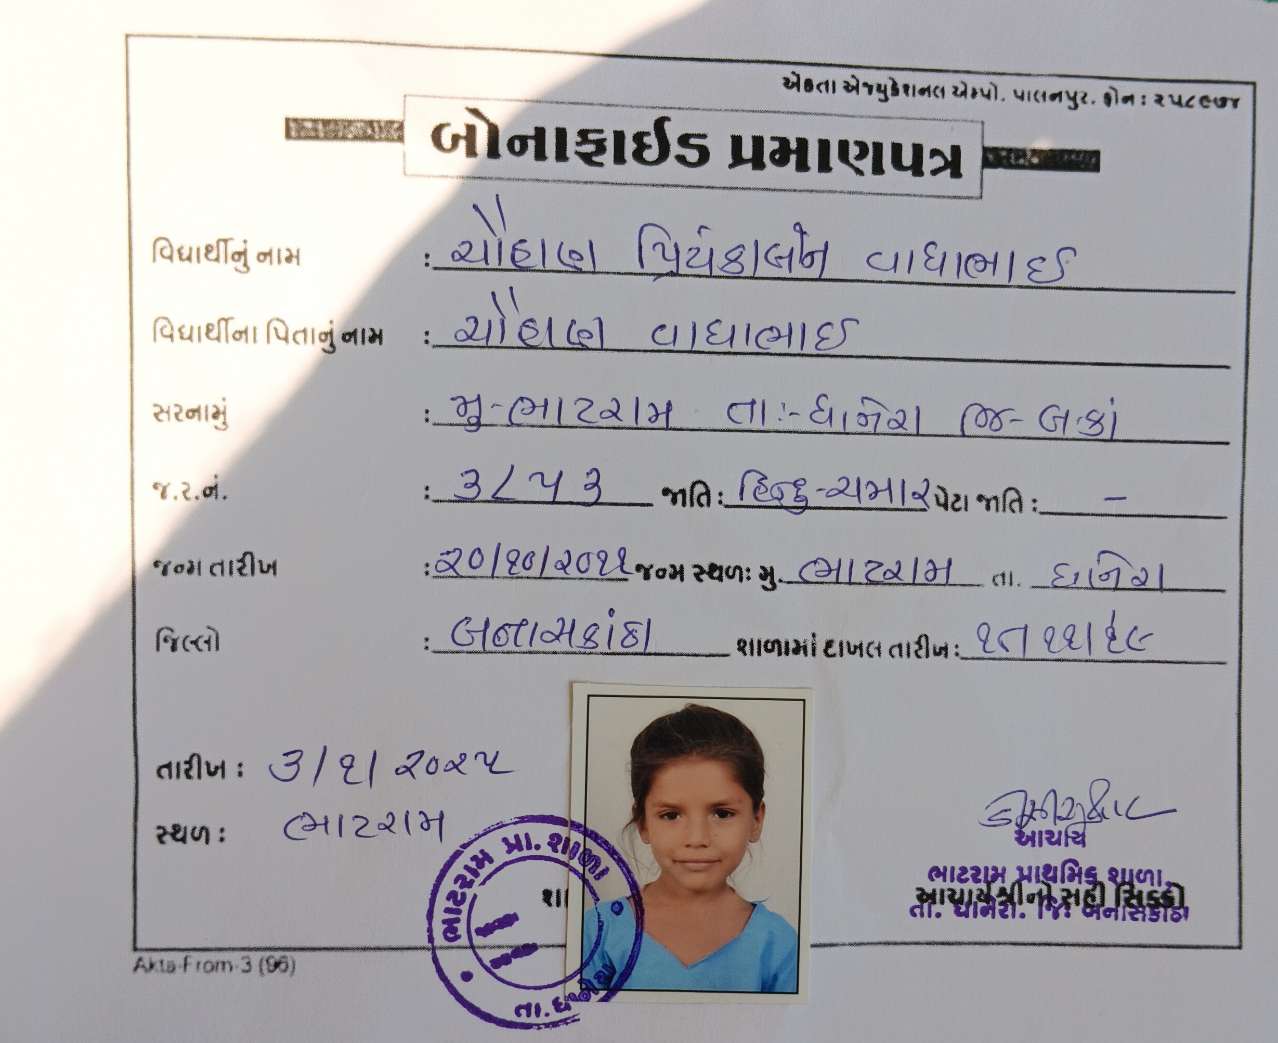 એકતા એજ્યુકેશનલ એમ્પો. પાલનપુર. ફોન : ૨૫૮૯૭૪
બોનાફાઈડ પ્રમાણપત્ર
વિદ્યાર્થીનું નામ : ચૌહાણ પ્રિયંકાબેન વાઘાભાઈ
વિદ્યાર્થીના પિતાનું નામ : ચૌહાણ વાઘાભાઈ
સરનામું : મુ-ભાટરામ તાઃ-ધાનેરા જિ-બ.કાં
જ.ર.નં. : ૩૮૫૩ જાતિ : હિન્દુ-ચમાર પેટા જાતિ : -
જન્મ તારીખ : ૨૦/૧૦/૨૦૧૧ જન્મ સ્થળઃ મુ. ભાટરામ તા. ધાનેરા
જિલ્લો : બનાસકાંઠા શાળામાં દાખલ તારીખ :
તારીખ : ૩/૧/૨૦૨૫
સ્થળ : ભાટરામ
આચાર્ય
ભાટરામ પ્રાથમિક શાળા,
આચાર્યશ્રીની સહી સિક્કો
તા. ધાનેરા. જિ. બનાસકાંઠા
શા
ભાટરામ પ્રા. શાળા
તા. ધાનેરા
Akta-From-3 (96)